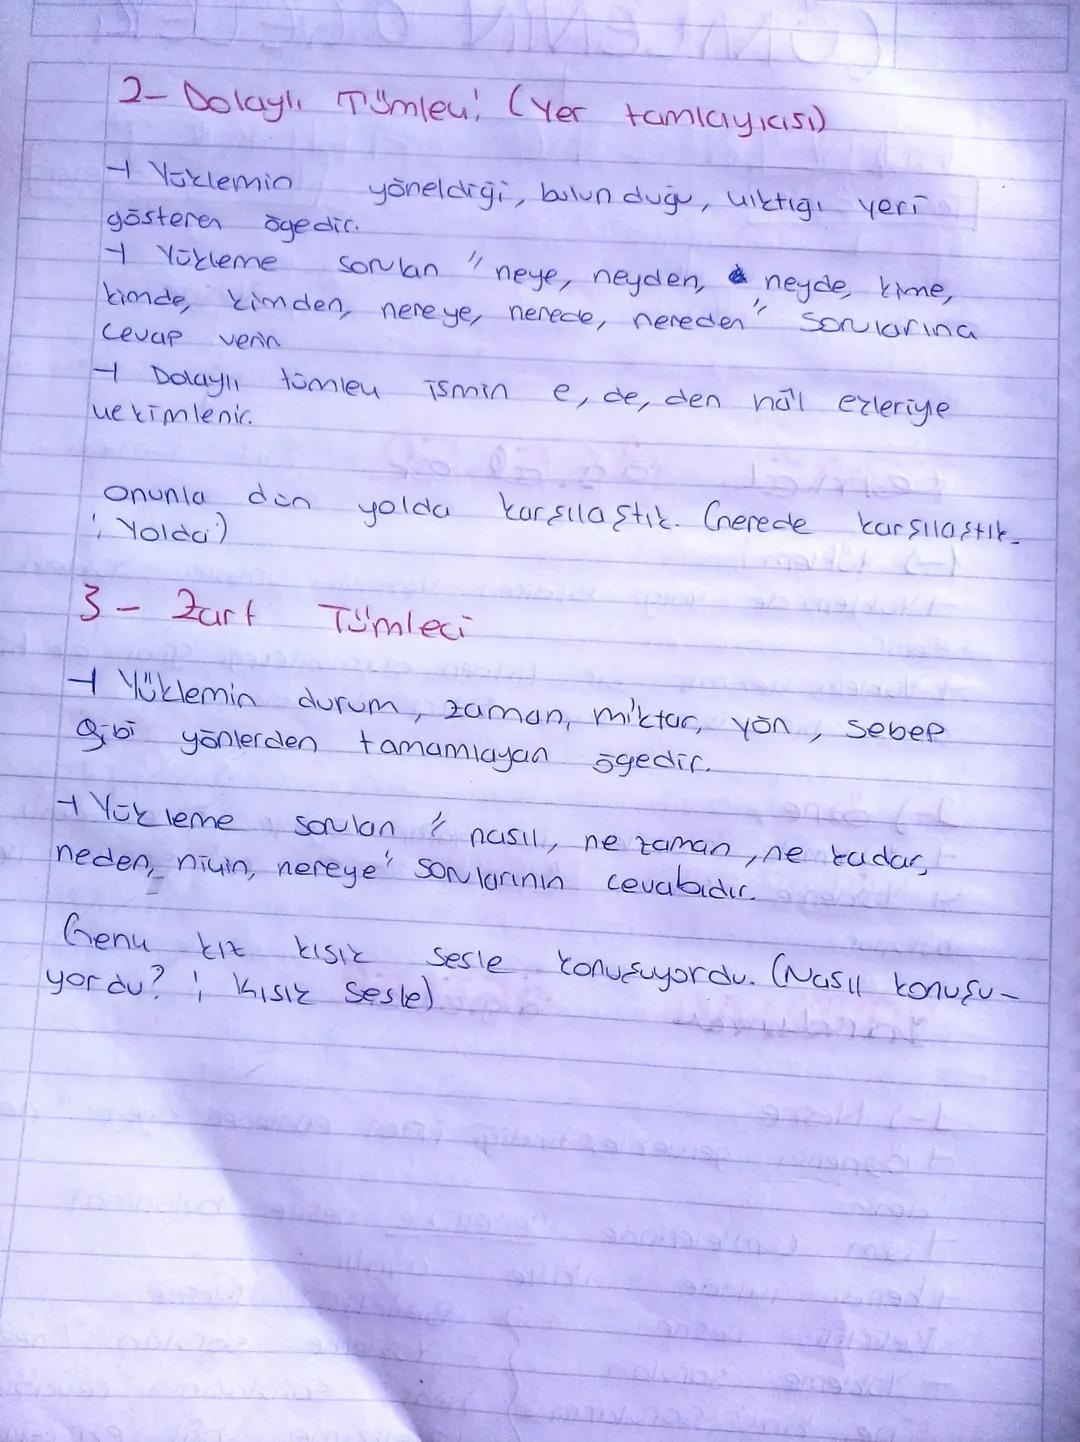 2- Dolaylı Tümleç: (Yer tamlayıcısı)
→ Yüklemin yöneldiği, bulunduğu, çıktığı yeri
gösteren ögedir.
→ Yükleme sorulan "neye, neyden, neyde, kime,
kimde, kimden, nereye, nerede, nereden" sorularına
cevap verir
→ Dolaylı tümleç ismin e, de, den hâl ekleriyle
çekimlenir.
Onunla dün yolda karşılaştık. (nerede karşılaştık-
; Yolda)
3- Zarf Tümleci
→ Yüklemin durum, zaman, miktar, yön, sebep
gibi yönlerden tamamlayan ögedir.
→ Yükleme sorulan " nasıl, ne zaman, ne kadar,
neden, niçin, nereye" sorularının cevabıdır.
Genç kız kısık sesle konuşuyordu. (Nasıl konuşu-
yordu? ; Kısık sesle)